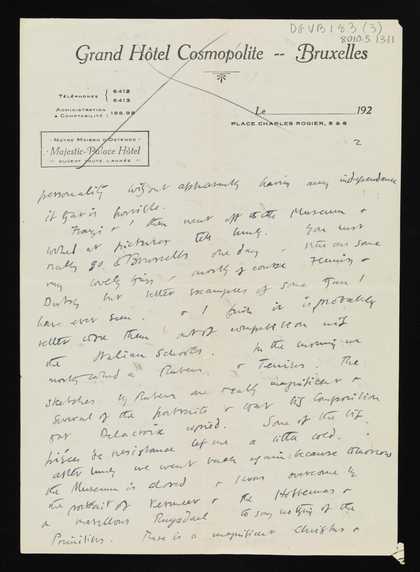 DEVB 183 (3)
8010.5.1311
Grand Hôtel Cosmopolite -- Bruxelles
TÉLÉPHONES { 6412
6413
ADMINISTRATION & COMPTABILITÉ } 198.98
Le 192
PLACE CHARLES ROGIER, 5 & 6
NOTRE MAISON D'OSTENDE
Majestic-Palace Hôtel
OUVERT TOUTE L'ANNÉE
2
personality without apparently having any independence
if that is possible.
& I then went off to the Museum &
looked at pictures till lunch. You must
really go to Brussels one day. are some
very lovely things & mostly of course Flemish &
Dutch, but better examples of some than I
have ever seen. & I think it is probably
better to see them out of competition with
the Italian Schools. In the morning we
mostly looked at Rubens & Teniers. The
sketches by Rubens are really magnificent &
several of the portraits & that big composition
that Delacroix copied. Some of the big
pièces de resistance left me a little cold.
after lunch we went back again because tomorrow
the Museum is closed & I was overcome by
the portrait of Vermeer & the Hobbemas &
a marvellous Ruysdael to say nothing of the
Primitives. There is a magnificent Christus &